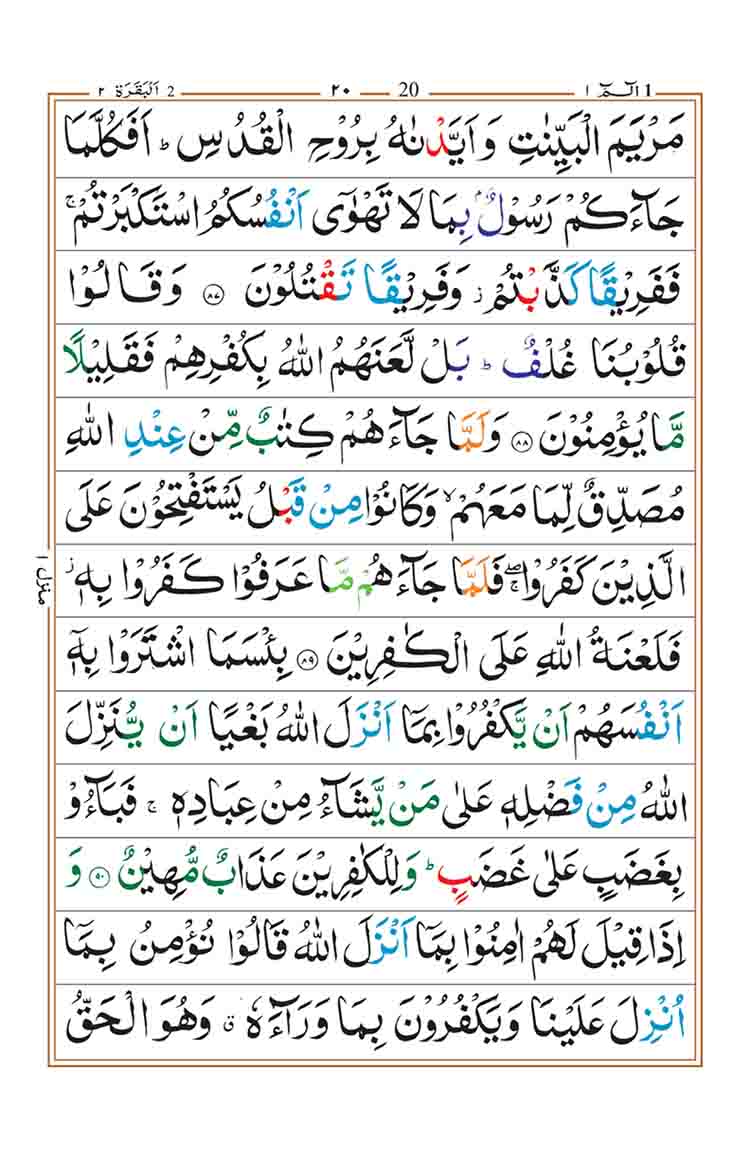 1 الٓـمّٓ ١ 20 ٢٠ 2 اَلْبَقَرَة ٢
مَرْيَمَ الْبَيِّنٰتِ وَ اَيَّدْنٰهُ بِرُوْحِ الْقُدُسِ ؕ اَفَكُلَّمَا
جَآءَكُمْ رَسُوْلٌۢ بِمَا لَا تَهْوٰۤى اَنْفُسُكُمُ اسْتَكْبَرْتُمْ ۚ
فَفَرِيْقًا كَذَّبْتُمْ ؗ وَ فَرِيْقًا تَقْتُلُوْنَ ۝۸۷ وَ قَالُوْا
قُلُوْبُنَا غُلْفٌ ؕ بَلْ لَّعَنَهُمُ اللّٰهُ بِكُفْرِهِمْ فَقَلِيْلًا
مَّا يُؤْمِنُوْنَ ۝۸۸ وَلَمَّا جَآءَهُمْ كِتٰبٌ مِّنْ عِنْدِ اللّٰهِ
مُصَدِّقٌ لِّمَا مَعَهُمْ ۙ وَكَانُوْا مِنْ قَبْلُ يَسْتَفْتِحُوْنَ عَلَى
الَّذِيْنَ كَفَرُوْا ۚۖ فَلَمَّا جَآءَهُمْ مَّا عَرَفُوْا كَفَرُوْا بِهٖ ؗ
فَلَعْنَةُ اللّٰهِ عَلَى الْكٰفِرِيْنَ ۝۸۹ بِئْسَمَا اشْتَرَوْا بِهٖۤ
اَنْفُسَهُمْ اَنْ يَّكْفُرُوْا بِمَاۤ اَنْزَلَ اللّٰهُ بَغْيًا اَنْ يُّنَزِّلَ
اللّٰهُ مِنْ فَضْلِهٖ عَلٰى مَنْ يَّشَآءُ مِنْ عِبَادِهٖ ۚ فَبَآءُوْ
بِغَضَبٍ عَلٰى غَضَبٍ ؕ وَلِلْكٰفِرِيْنَ عَذَابٌ مُّهِيْنٌ ۝۹۰ وَ
اِذَا قِيْلَ لَهُمْ اٰمِنُوْا بِمَاۤ اَنْزَلَ اللّٰهُ قَالُوْا نُؤْمِنُ بِمَاۤ
اُنْزِلَ عَلَيْنَا وَيَكْفُرُوْنَ بِمَا وَرَآءَهٗ ۗ وَهُوَ الْحَقُّ
منزل ١